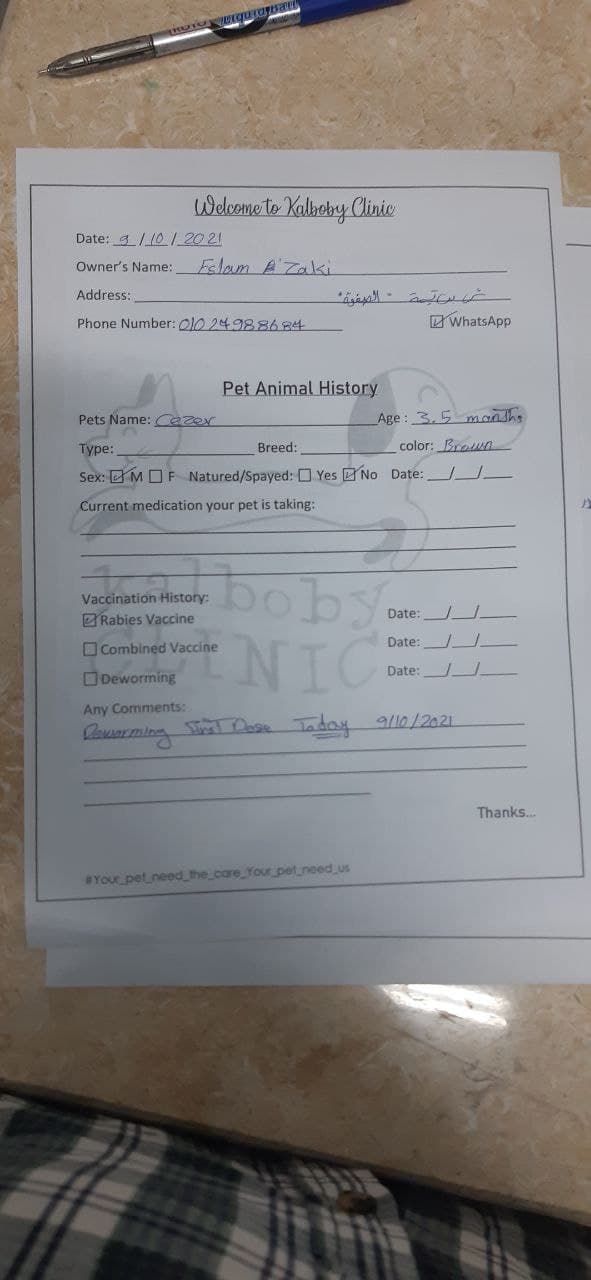 Liquid Ball
Welcome to Kalboby Clinic
Date: 9 / 10 / 2021
Owner's Name: Eslam Zaki
Address: ش بن تيمية - "الصفوة"
Phone Number: 01024988684 ☑ WhatsApp
Pet Animal History
Pets Name: Cezer Age : 3.5 months
Type: Breed: color: Brown
Sex: ☑ M ☐ F Natured/Spayed: ☐ Yes ☑ No Date: __/__/__
Current medication your pet is taking:
kalboby
CLINIC
Vaccination History:
☑ Rabies Vaccine Date: __/__/__
☐ Combined Vaccine Date: __/__/__
☐ Deworming Date: __/__/__
Any Comments:
Deworming First Dose Today 9/10/2021
Thanks...
#Your_pet_need_the_care_Your_pet_need_us